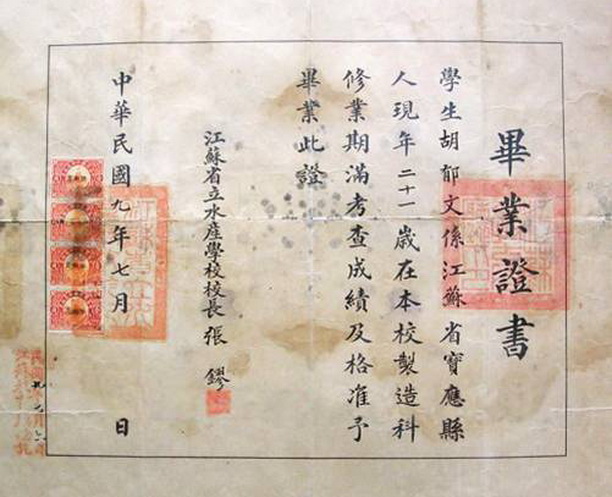 畢業證書
學生胡郁文係江蘇省寶應縣
人現年二十一歲在本校製造科
修業期滿考查成績及格准予
畢業此證
江蘇省立水產學校校長張鏐
中華民國九年七月　日